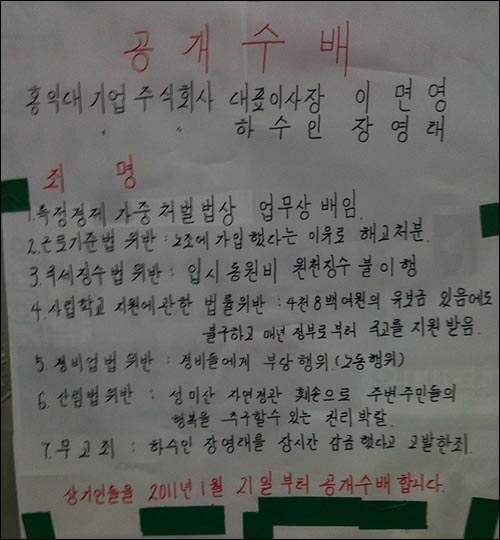 공개수배
홍익대 기업 주식회사 대표이사장 이면영
〃 〃 하수인 장영태
죄명
1. 특정경제 가중처벌법상 업무상 배임.
2. 근로기준법 위반 : 노조에 가입했다는 이유로 해고처분.
3. 국세징수법 위반 : 입시 동원비 원천징수 불이행
4. 사립학교 지원에 관한 법률위반 : 4천8백여원의 유보금 있음에도
불구하고 매년 정부로부터 국고를 지원 받음.
5. 경비업법 위반 : 경비들에게 부당행위.(노동행위)
6. 산림법위반 : 성미산 자연경관 훼손으로 주변주민들의
행복을 추구할수 있는 권리박탈.
7. 무고죄 : 하수인 장영태를 장시간 감금했다고 고발한죄.
상기인들을 2011년 1월 21일부터 공개수배합니다.